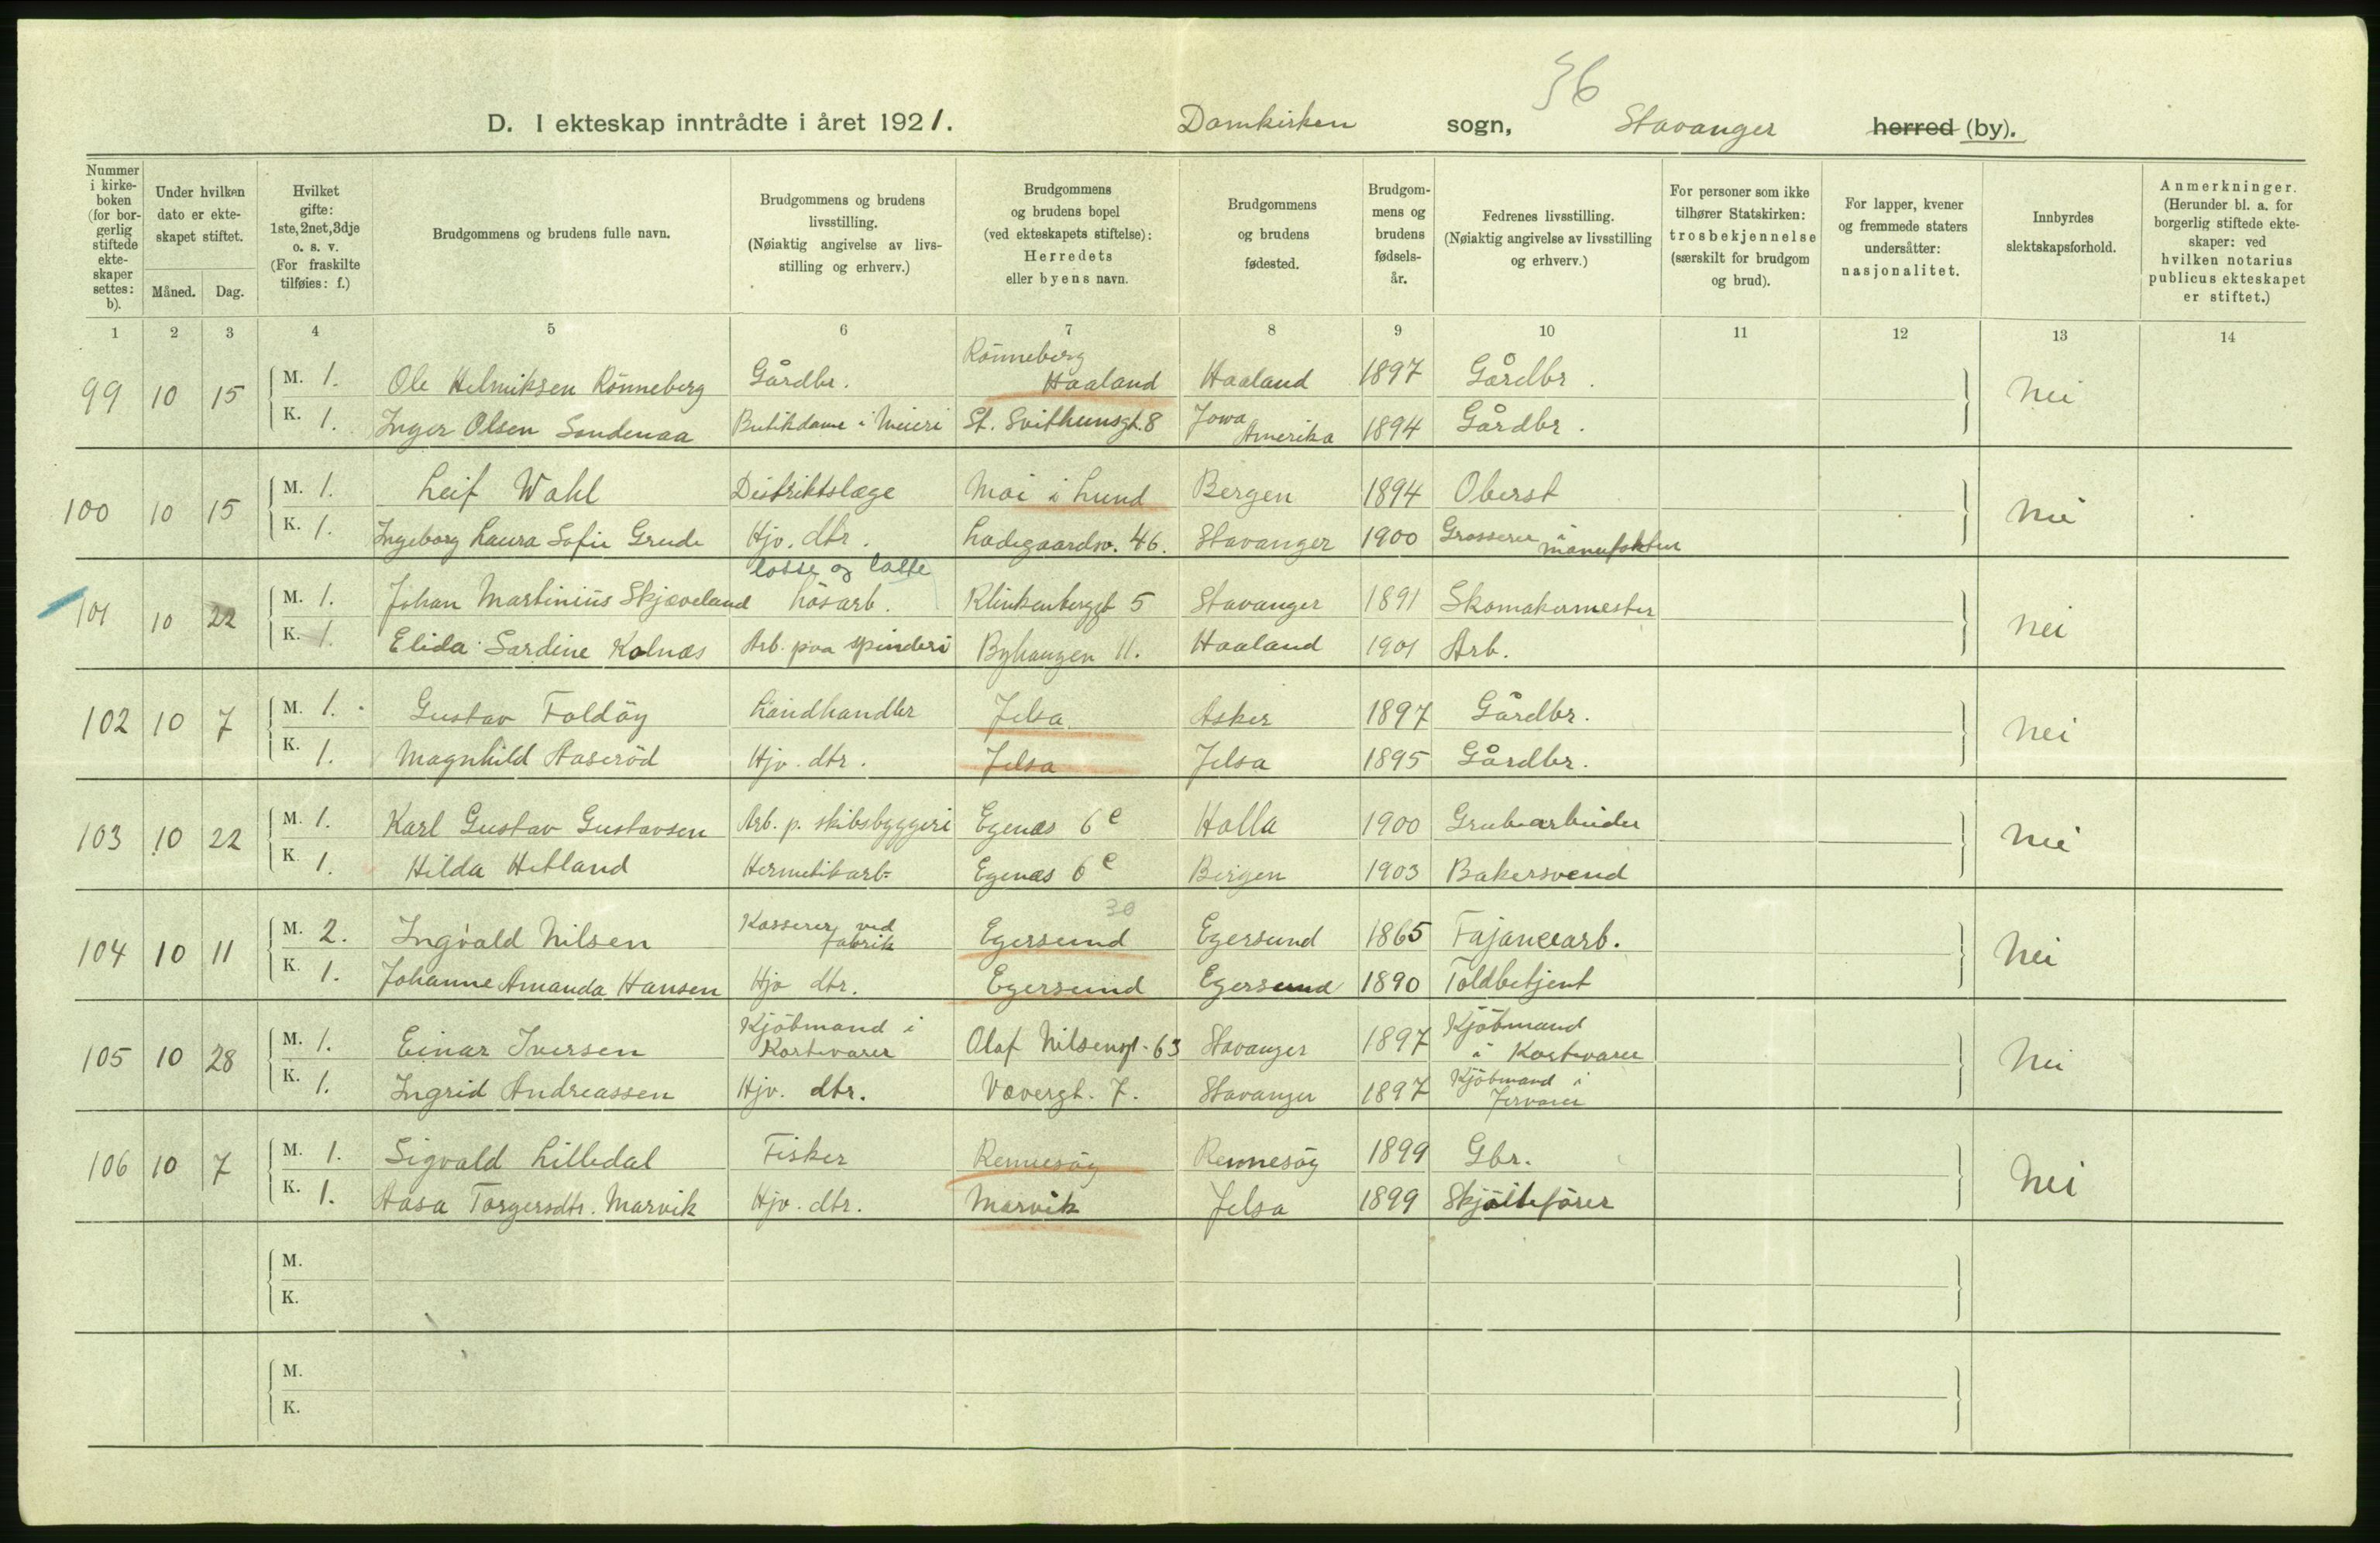 36
D. I ekteskap inntrådte i året 1921. Domkirken sogn, Stavanger herred (by).
Nummer i kirke-boken (for bor-gerlig stiftede ekte-skaper settes: b).
Under hvilken dato er ekte-skapet stiftet.
Måned. Dag.
Hvilket gifte: 1ste, 2net, 3dje o. s. v. (For fraskilte tilføies: f.)
Brudgommens og brudens fulle navn.
Brudgommens og brudens livsstilling. (Nøiaktig angivelse av livs-stilling og erhverv.)
Brudgommens og brudens bopel (ved ekteskapets stiftelse): Herredets eller byens navn.
Brudgommens og brudens fødested.
Brudgom-mens og brudens fødsels-år.
Fedrenes livsstilling. (Nøiaktig angivelse av livsstilling og erhverv.)
For personer som ikke tilhører Statskirken: trosbekjennelse (særskilt for brudgom og brud).
For lapper, kvener og fremmede staters undersåtter: nasjonalitet.
Innbyrdes slektskapsforhold.
Anmerkninger. (Herunder bl. a. for borgerlig stiftede ekte-skaper: ved hvilken notarius publicus ekteskapet er stiftet.)
1 2 3 4 5 6 7 8 9 10 11 12 13 14
99 10 15 M. 1. Ole Helmiksen Rönneberg Gårdbr. Rönneberg Haaland Haaland 1897 Gårdbr. Nei
K. 1. Inger Olsen Sondenaa Butikdame i Meieri St. Svithunsgt. 8 Jowa Amerika 1894 Gårdbr.
100 10 15 M. 1. Leif Wahl Distriktslæge Moi i Lund Bergen 1894 Oberst Nei
K. 1. Ingeborg Laura Sofie Grude Hjv. dtr. Ladegaardsv. 46. Stavanger 1900 Grosserer i manufaktur
101 10 22 M. 1. Johan Martinius Skjæveland losse og laste Lösarb. Klinkenberggt 5 Stavanger 1891 Skomakermester Nei
K. 1. Elida Sardine Kolnæs Arb. paa spinderi Byhaugen 11. Haaland 1901 Arb.
102 10 7 M. 1. Gustav Foldöy Landhandler Jelsa Asker 1897 Gårdbr. Nei
K. 1. Magnhild Aaseröd Hjv. dtr. Jelsa Jelsa 1895 Gårdbr.
103 10 22 M. 1. Karl Gustav Gustavsen Arb. p. skibsbyggeri Egenæs 6 e Holla 1900 Grubearbeider Nei
K. 1. Hilda Hetland Hermetikarb. Egenæs 6 e Bergen 1903 Bakersvend
30
104 10 11 M. 2. Ingvald Nilsen Kasserer ved fabrik Egersund Egersund 1865 Fajancearb. Nei
K. 1. Johanne Amanda Hansen Hjv dtr. Egersund Egersund 1890 Toldbetjent
105 10 28 M. 1. Einar Iversen Kjöbmand i Kortevarer Olaf Nilsensgt. 63 Stavanger 1897 Kjöbmand i Kortevarer Nei
K. 1. Ingrid Andreassen Hjv. dtr. Vævergt. 7. Stavanger 1897 Kjöbmand i Jernvarer
106 10 7 M. 1. Sigvald Lilledal Fisker Rennesöy Rennesöy 1899 Gbr. Nei
K. 1. Aasa Torgersdtr. Marvik Hjv. dtr. Marvik Jelsa 1899 Skjöitefører
M.
K.
M.
K.